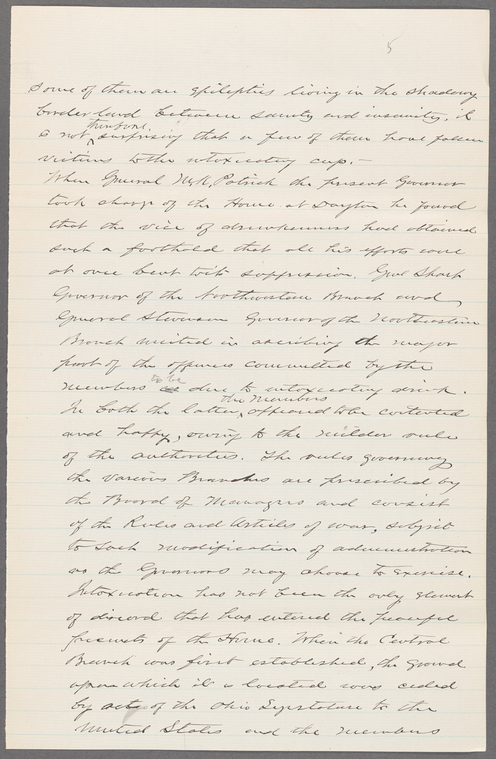 5
Some of them are epileptics living in the shadowy
border land between sanity and insanity, it
is not, therefore, surprising that a few of them have fallen
victims to the intoxicating cup.—
When General M.R. Patrick the present Governor
took charge of the Home at Dayton he found
that the vice of drunkenness had obtained
such a foothold that all his efforts were
at once bent to its suppression. Genl Sharp
Governor of the Northwestern Branch and
General Stevenson Governor of the Northeastern
Branch united in ascribing the major
part of the offences committed by the
members to be due to intoxicating drink.
In both the latter, the members appeared to be contented
and happy, owing to the milder rule
of the authorities. The rules governing
the various Branches are prescribed by
the Board of Managers and consist
of the Rules and Articles of war, subject
to such modification of administration
as the Governors may choose to exercise.
Intoxication has not been the only element
of discord that has entered the peaceful
precincts of the Home. When the Central
Branch was first established, the ground
upon which it is located was ceded
by act of the Ohio Legislature to the
United States and the members